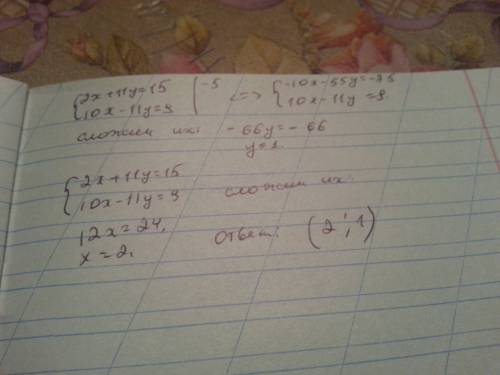 {2x+11y=15 |-5 <=> {-10x-55y=-75
{10x-11y=9 {10x-11y=9.
сложим их: -66y=-66
y=1.
{2x+11y=15
{10x-11y=9 сложим их:
12x=24,
x=2. Ответ: (2;1)